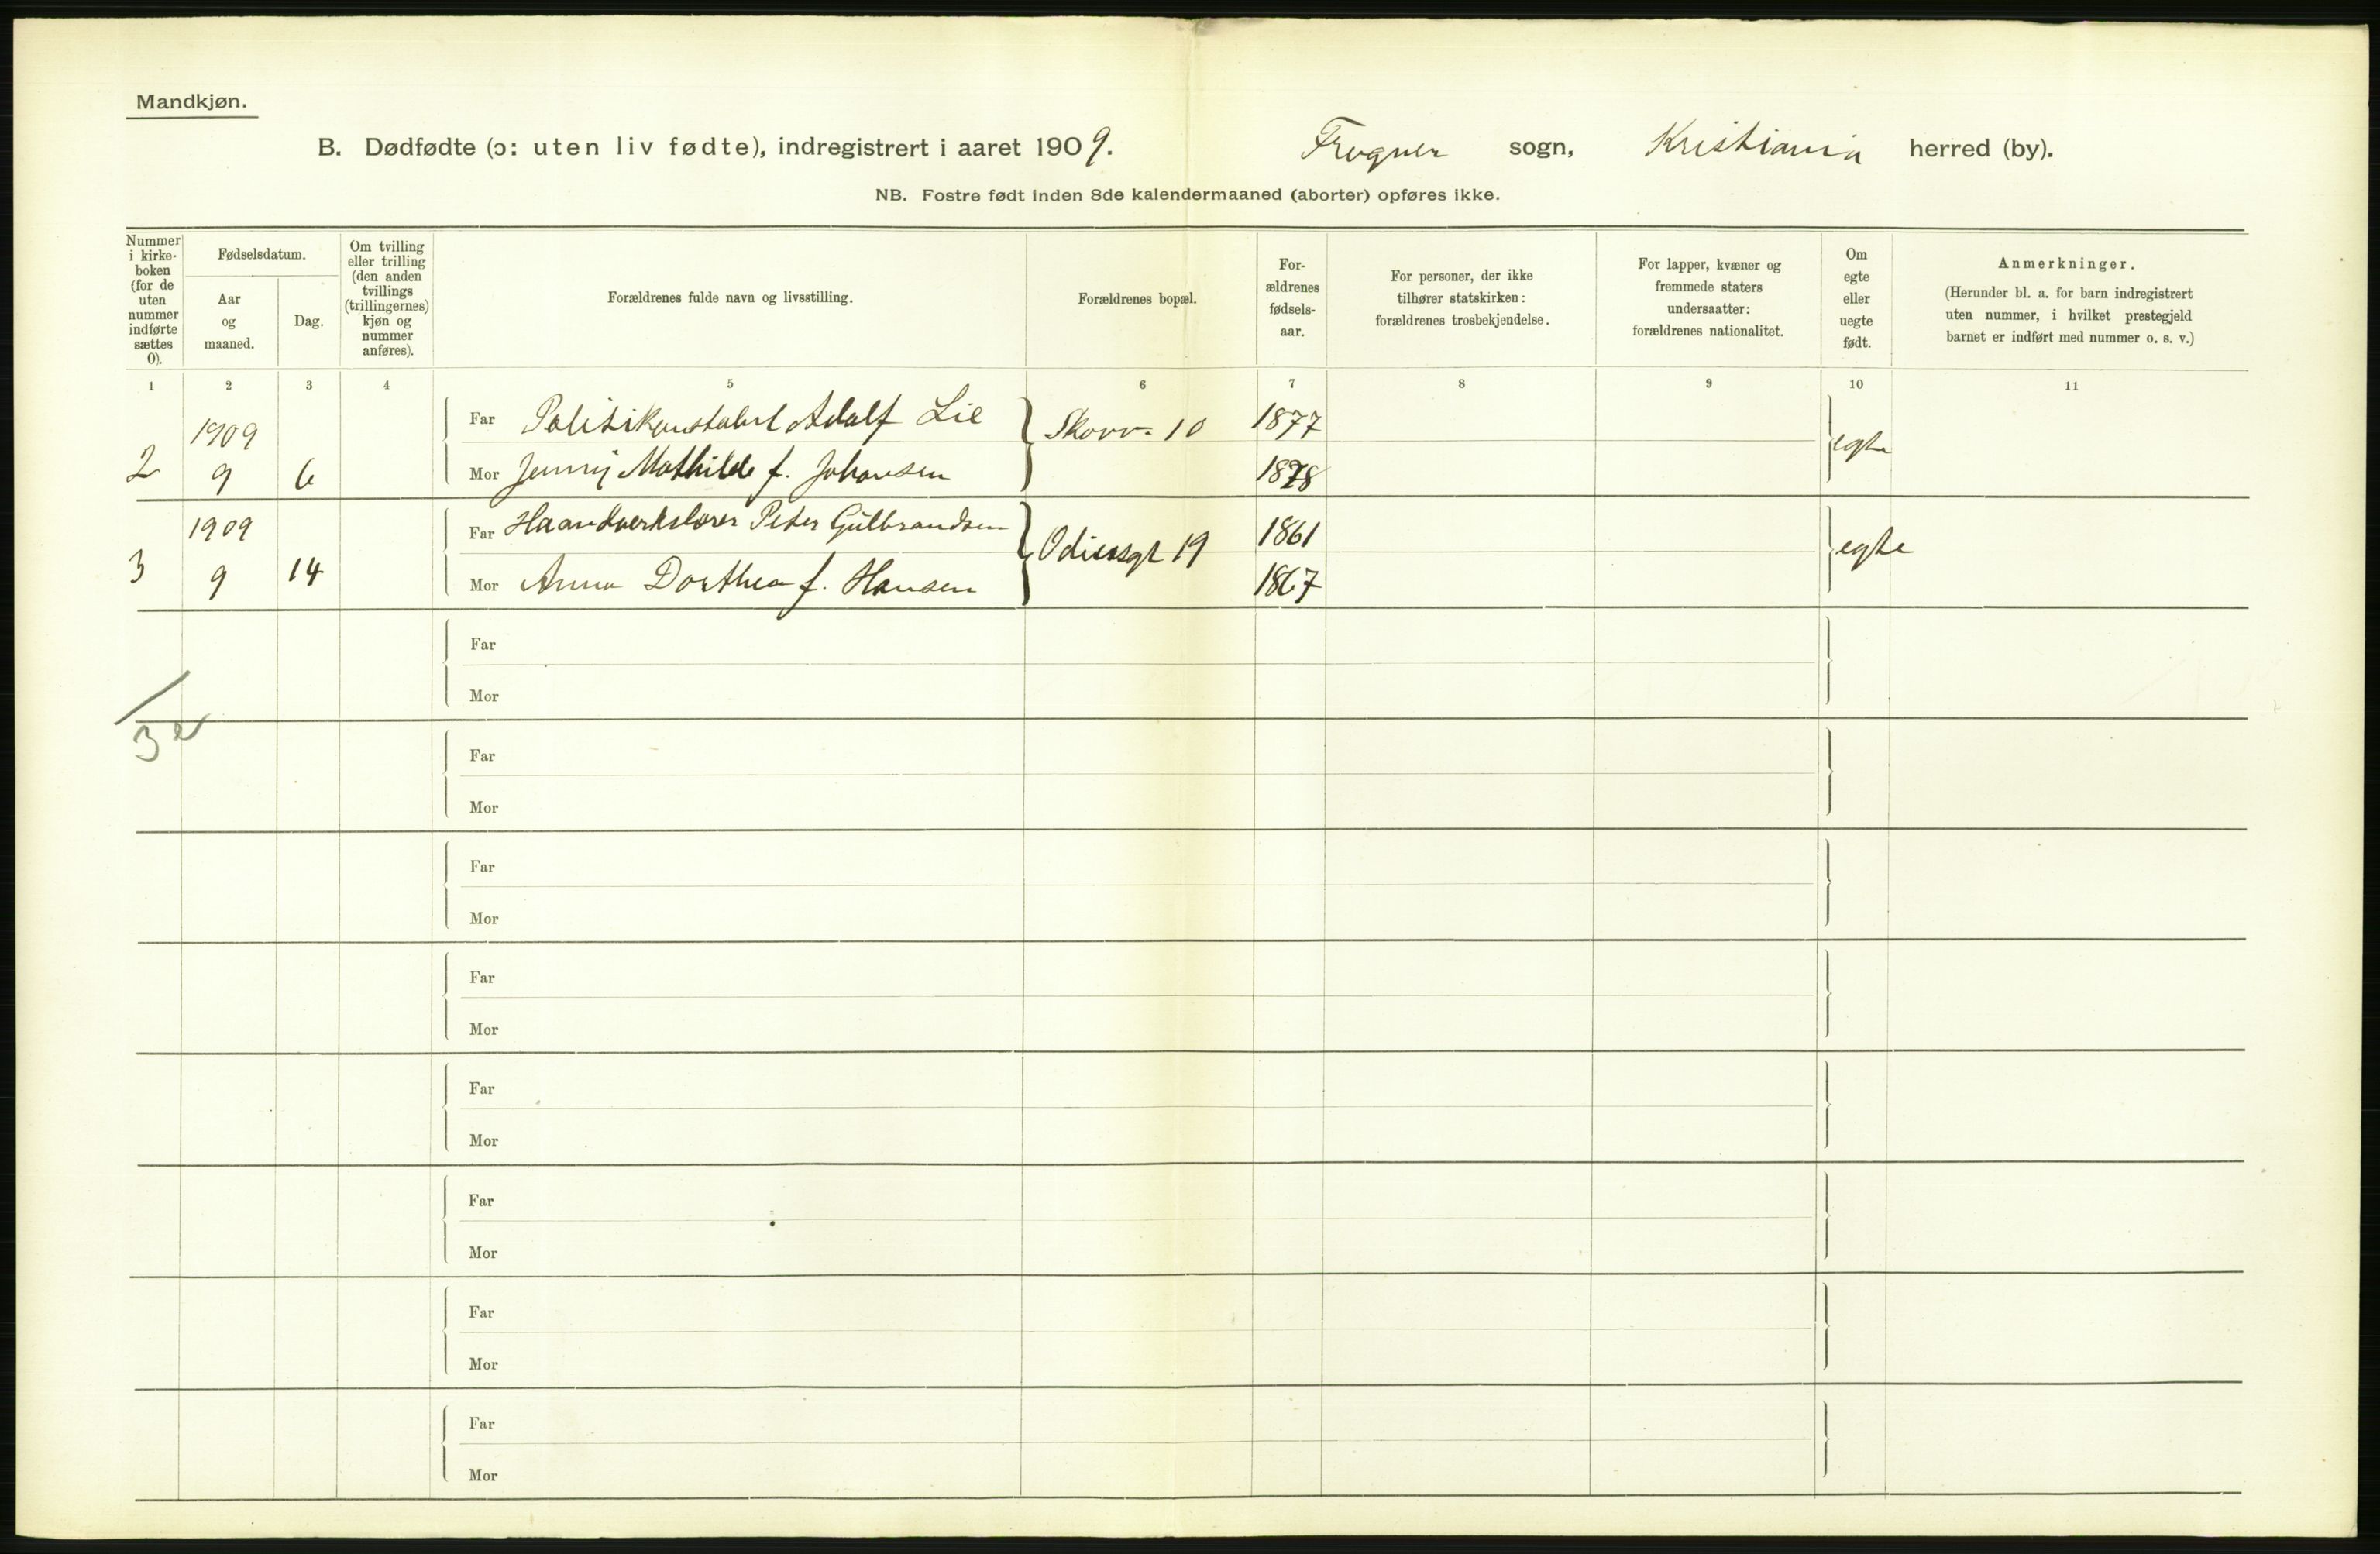 Mandkjøn.
B. Dødfødte (ɔ: uten liv fødte), indregistrert i aaret 1909. Frogner sogn, Kristiania herred (by).
NB. Fostre født inden 8de kalendermaaned (aborter) opføres ikke.
Nummer i kirke-boken (for de uten nummer indførte sættes 0).
Fødselsdatum.
Aar og maaned.
Dag.
Om tvilling eller trilling (den anden tvillings (trillingernes) kjøn og nummer anføres).
Forældrenes fulde navn og livsstilling.
Forældrenes bopæl.
For-ældrenes fødsels-aar.
For personer, der ikke tilhører statskirken: forældrenes trosbekjendelse.
For lapper, kvæner og fremmede staters undersaatter: forældrenes nationalitet.
Om egte eller uegte født.
Anmerkninger.
(Herunder bl. a. for barn indregistrert uten nummer, i hvilket prestegjeld barnet er indført med nummer o. s. v.)
1 2 3 4 5 6 7 8 9 10 11
2 1909 9 6
Far Politikonstabel Adolf Lie Skovv. 10 1877 egte
Mor Jenny Mathilde f. Johansen 1878
3 1909 9 14
Far Haandverkslærer Peter Gülbrandsen Odinsgt 19 1861 egte
Mor Anna Dorthea f. Hansen 1867
Far
Mor
3 2
Far
Mor
Far
Mor
Far
Mor
Far
Mor
Far
Mor
Far
Mor
Far
Mor